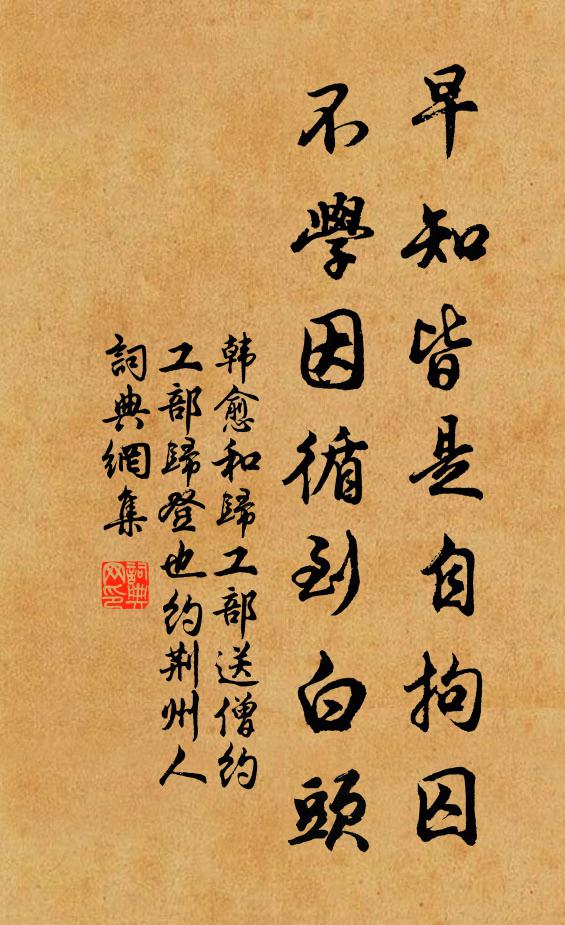 早知皆是自拘囚
不學因循到白頭
韩愈和歸工部送僧约
工部歸登也约荆州人
詞典網集
詞典网印